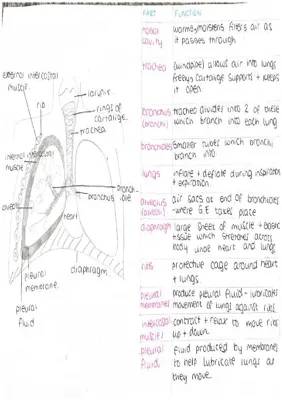 PART FUNCTION
nasal cavity
warms, moistens, filters air as
it passes through
trachea
(windpipe) allows air into lungs
cartilage supports + keeps
it open
bronchus
(bronchi)
trachea divides into 2 of these
which branch into each lung
bronchioles
smaller tubes which bronchi
branch into
lungs
inflate + deflate during inspiration
+ expiration
alveolus
(alveoli)
air sacs at end of bronchioles
-where G.E takes place
diaphragm
large sheet of muscle +
tissue which stretches across
body under heart and lungs
ribs
protective cage around heart
+ lungs
pleural
membranes
produce pleural fluid + lubricate
movement of lungs against ribs
intercostal
muscles
contract + relax to move ribs
up + down
pleural
fluid
fluid produced by membranes
to help lubricate lungs as
they move
external intercostal
muscle
rib
larynx
rings of
cartilage
trachea
internal intercostal
muscle
bronchus
heart
pleural
membrane
diaphragm
pleural
fluid